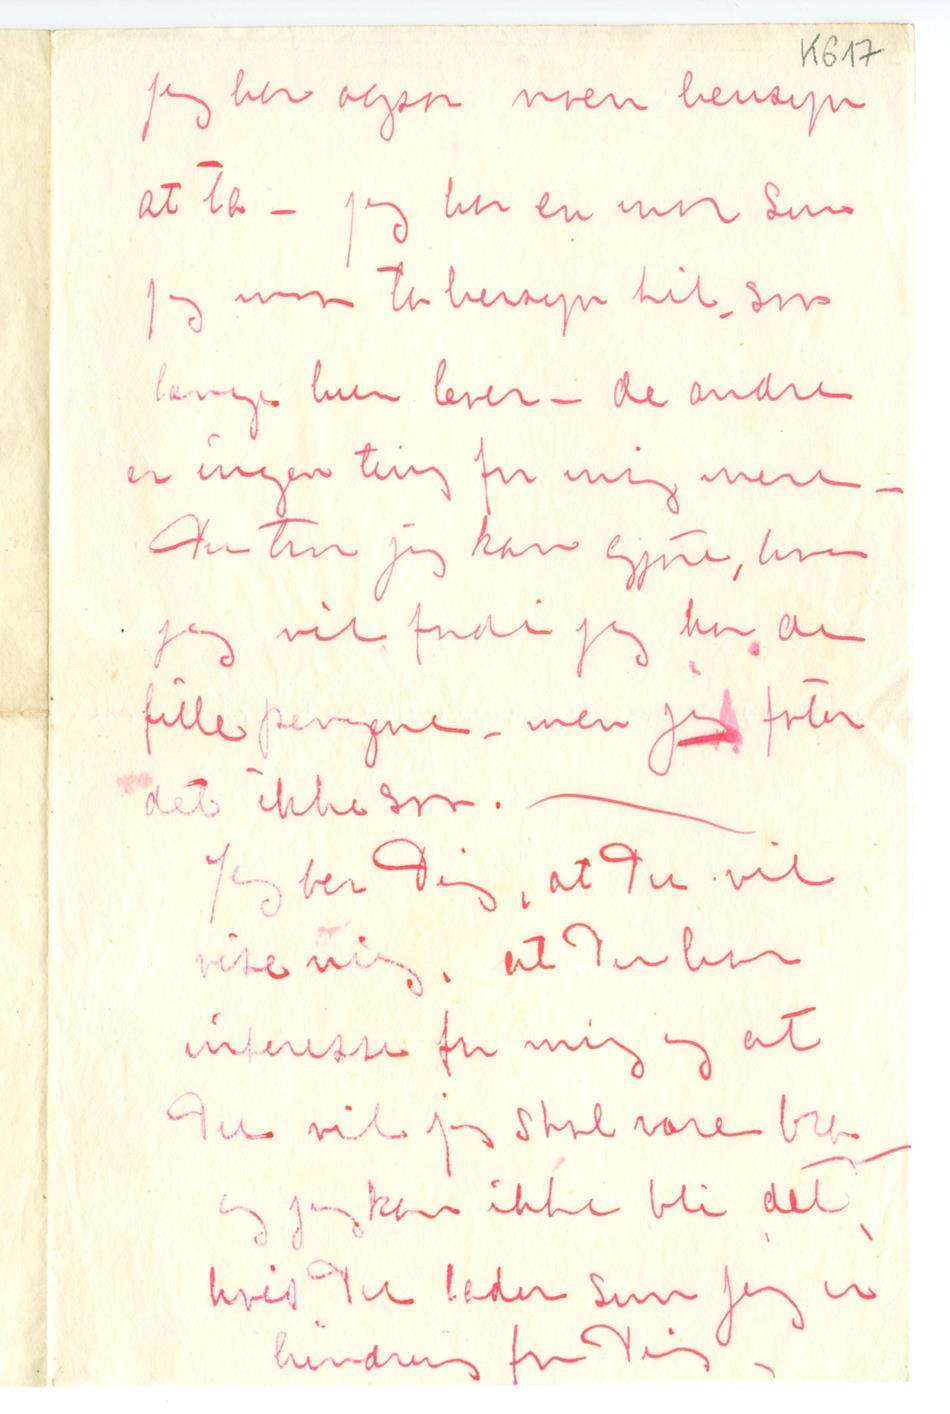 K617
jeg har ogsaa noen hensyn
at ta – jeg har en mor som
jeg maa ta hensyn til, saa
længe hun lever – de andre
er ingen ting for mig mere –
Du tror jeg kan gjøre, hva
jeg vil fordi jeg har de
fille pengene – men jeg føler
det ikke saa.
Jeg ber Dig, at Du vil
vise mig, at Du har
interesse for mig og at
Du vil jeg skal være bra
og jeg kan ikke bli det,
hvis Du lader som jeg er
hindring for Dig,